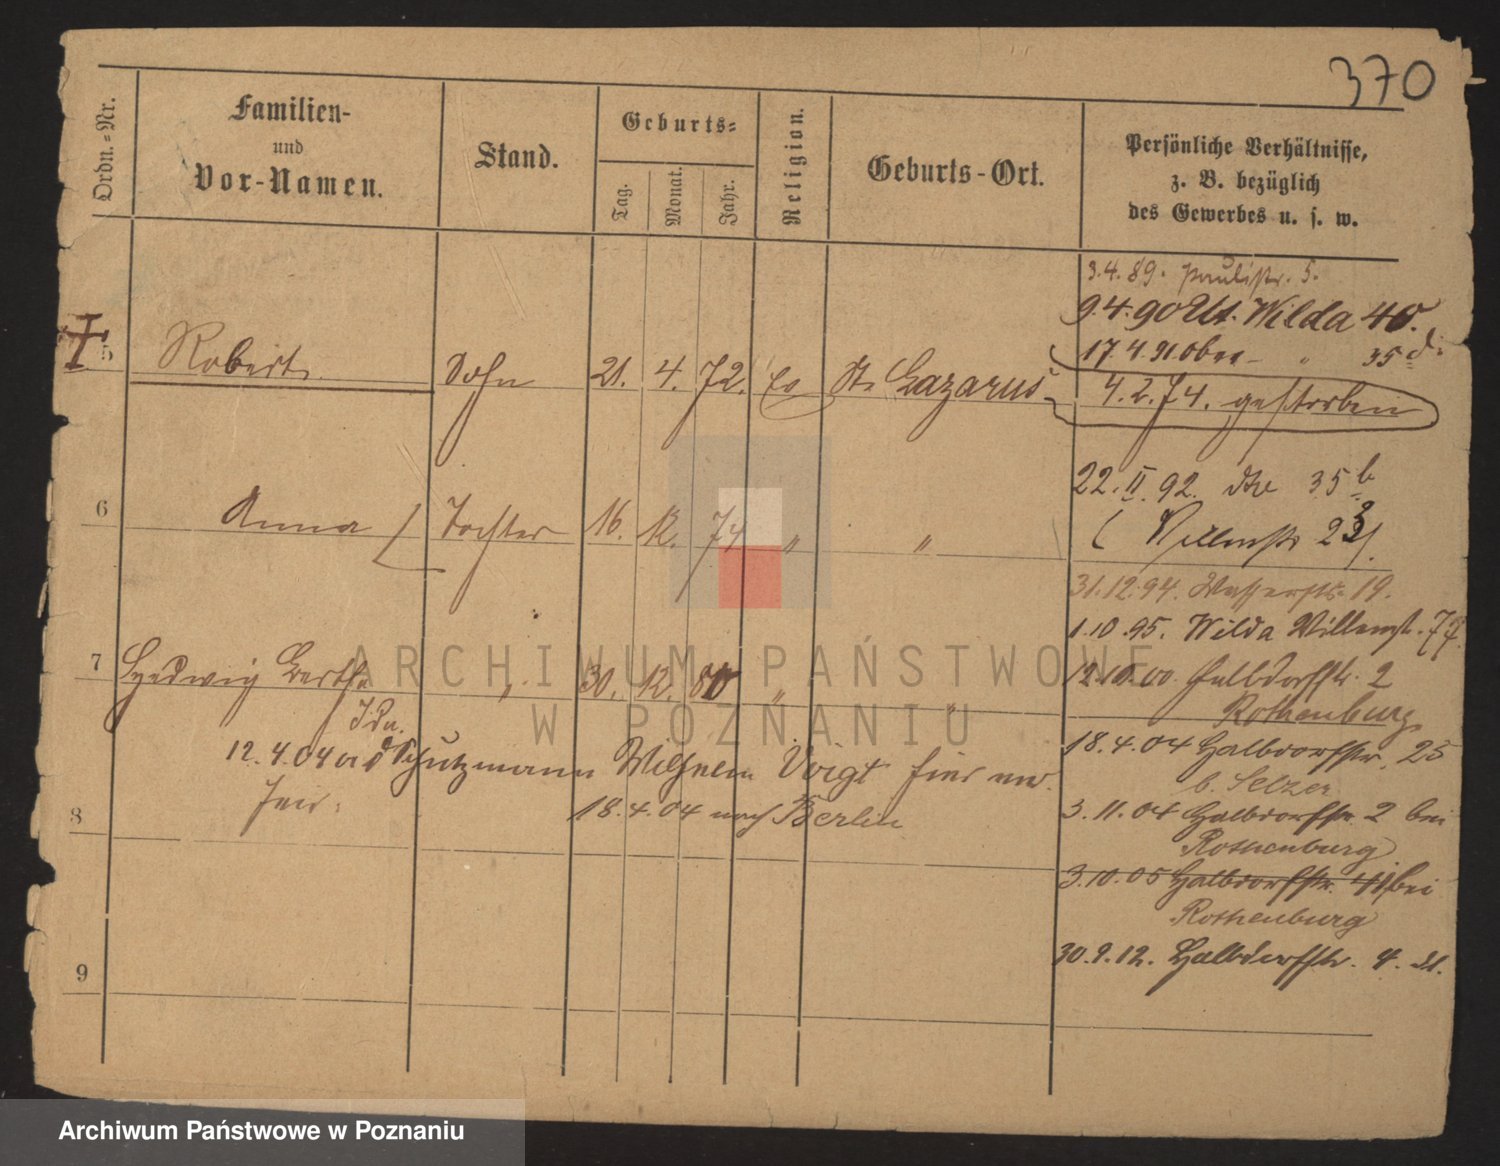 370
Ordn.-Nr.
Familien-
und
Vor-Namen.
Stand.
Geburts-
Tag.
Monat.
Jahr.
Religion.
Geburts-Ort.
Persönliche Verhältnisse,
z. B. bezüglich
des Gewerbes u. s. w.
3.4.89. Paulistr. 5.
9.4.90 Ut. Wilda 40.
17.4.91 Ober - " 35
5 Robert Sohn 21. 4. 72. Ev St. Lazarus
4.2.74. gestorben
22. II. 92. 35 b
6 Anna Tochter 16. 12. 74 " "
31.12.94. Wasserstr. 19.
1.10.95. Wilda 77
7 Hedwig Bertha " 30. 12. 80 " "
Ida.
12.10.00 Halbdorfstr. 2
Rothenburg
12.4.04 Schutzmann Wilhelm Voigt hier
18.4.04 Halbdorfstr. 25
b. Selzer
8 18.4.04 nach Berlin
3.11.04 Halbdorfstr. 2 bei
Rothenburg
3.10.05 Halbdorfstr. bei
Rothenburg
9 30.9.12. Halbdorfstr. 4.
ARCHIWUM PAŃSTWOWE
W POZNANIU
Archiwum Państwowe w Poznaniu